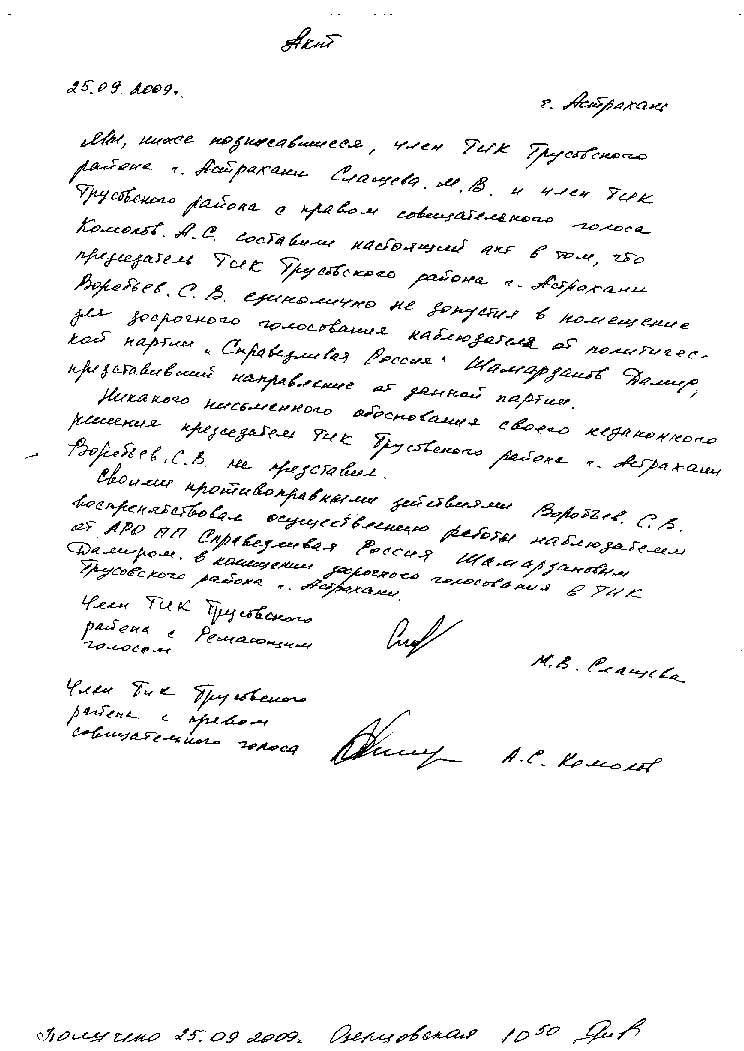 Акт
25.09.2009.
г. Астрахань
Мы, ниже подписавшиеся, член ТИК Трусовского
района г. Астрахани Слащева. М.В. и член ТИК
Трусовского района с правом совещательного голоса
Комолов. А.С. составили настоящий акт в том, что
председатель ТИК Трусовского района г. Астрахани
Воробьев. С.В. единолично не допустил в помещение
для досрочного голосования наблюдателя от политичес-
кой партии "Справедливая Россия" Шамарданов Дамир,
представивший направление от данной партии.
Никакого письменного обоснования своего незаконного
решения председатель ТИК Трусовского района г. Астрахани
Воробьев. С.В. не представил.
Своими противоправными действиями Воробьев. С.В.
воспрепятствовал осуществлению работы наблюдателем
от АРО ПП Справедливая Россия Шамардановым
Дамиром. в помещении досрочного голосования в ТИК
Трусовского района г. Астрахани.
Член ТИК Трусовского
района с Решающим
голосом
М.В. Слащева
Член ТИК Трусовского
района с правом
совещательного голоса
А.С. Комолов
Получено 25.09.2009г. 10 50